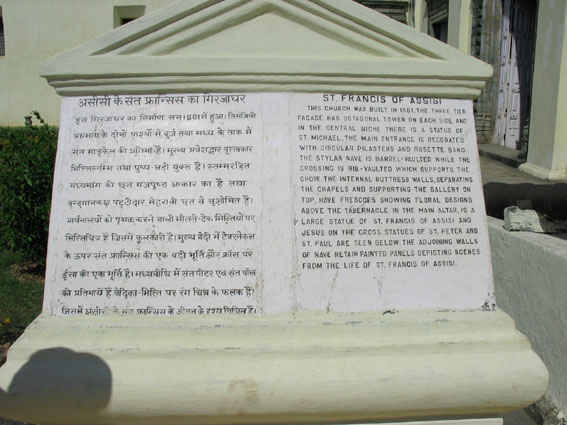 असीसी के संत फ्रान्सिस का गिरजाघर
इस गिरजाघर का निर्माण सन् 1661 में हुआ। तिमंजिली
अग्रभाग के दोनों पार्श्वों में बुर्ज तथा मध्य के ताक में
संत माइकेल की प्रतिमा है। मुख्य प्रवेशद्वार वृत्ताकार
भित्तिस्तम्भ तथा पुष्प-लड़ी युक्त है। स्तम्भरहित
मध्यभाग की छत गजपृष्ठ आकार का है तथा
की छत से सुशोभित है।
प्रार्थनालयों को पृथक करने वाली भीतरी-टेक भित्तियों पर
भित्तिचित्र हैं जिसमें फूलकारी है। मुख्य बेदी में टैबरनेकल
के ऊपर संत फ्रान्सिस की एक बड़ी मूर्ति और क्रॉस पर
ईसा की एक मूर्ति है। मध्यवीथि में संत पीटर एवं संत पॉल
की प्रतिमायें हैं वेदिका-भित्ति पर रंग चित्र के फलक हैं
जिसमें असीसी के संत फ्रान्सिस के जीवन के दृश्य चित्रित हैं।
ST. FRANCIS OF ASSISI
THIS CHURCH WAS BUILT IN 1661. THE THREE TIER
FACADE HAS OCTAGONAL TOWER ON EACH SIDE AND
IN THE CENTRAL NICHE THERE IS A STATUE OF
ST. MICHAEL. THE MAIN ENTRANCE IS DECORATED
WITH CIRCULAR PILASTERS AND ROSETTE BAND.
THE STYLAR NAVE IS BARREL-VAULTED WHILE THE
CROSSING IS RIB-VAULTED WHICH SUPPORTS THE
CHOIR. THE INTERNAL BUTTRESS WALLS, SEPARATING
THE CHAPELS AND SUPPORTING THE GALLERY ON
TOP, HAVE FRESCOES SHOWING FLORAL DESIGNS
ABOVE THE TABERNACLE IN THE MAIN ALTAR, IS A
LARGE STATUE OF ST. FRANCIS OF ASSISI AND
JESUS ON THE CROSS STATUES OF ST. PETER AND
ST. PAUL ARE SEEN BELOW. THE ADJOINING WALLS
OF NAVE RETAIN PAINTED PANELS DEPICTING SCENES
FROM THE LIFE OF ST. FRANCIS OF ASSISI.